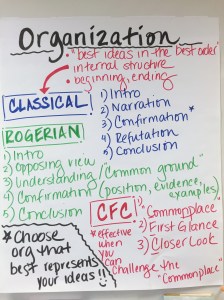 Organization
• "best ideas in the best order"
• internal structure
• beginning, ending
CLASSICAL
1) Intro
2) Narration
3) Confirmation *
4) Refutation
5) Conclusion
ROGERIAN
1) Intro
2) Opposing view
3) Understanding / "Common ground"
4) Confirmation (position, evidence, examples)
5) Conclusion
CFC
1) "Commonplace"
2) First Glance
3) Closer Look
* effective
when
you
can
challenge the
"Commonplace"
* Choose
org that
best represents
your ideas!!